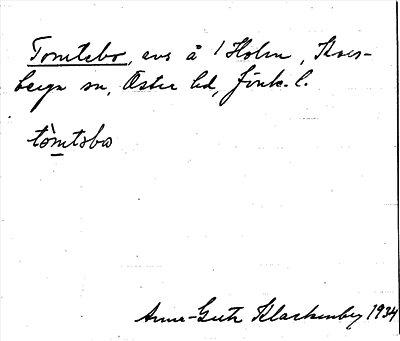 Tomtebo, avs å 1 Holm, Kors-
berga sn, Öster hd, Jönk. l.
tòmtəbo
Anna-Greta Klackenberg 1934